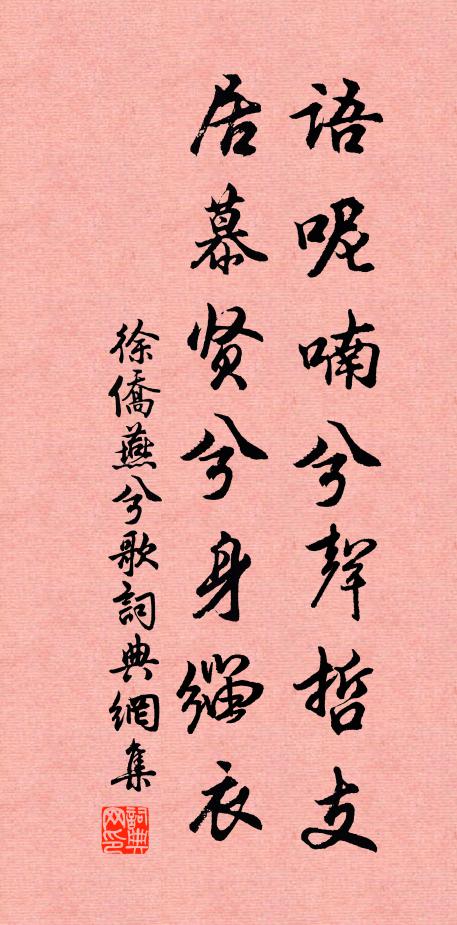 語呢喃兮聲哲支
居慕贤兮身緇衣
徐僑燕兮歌詞典網集
詞典
网印